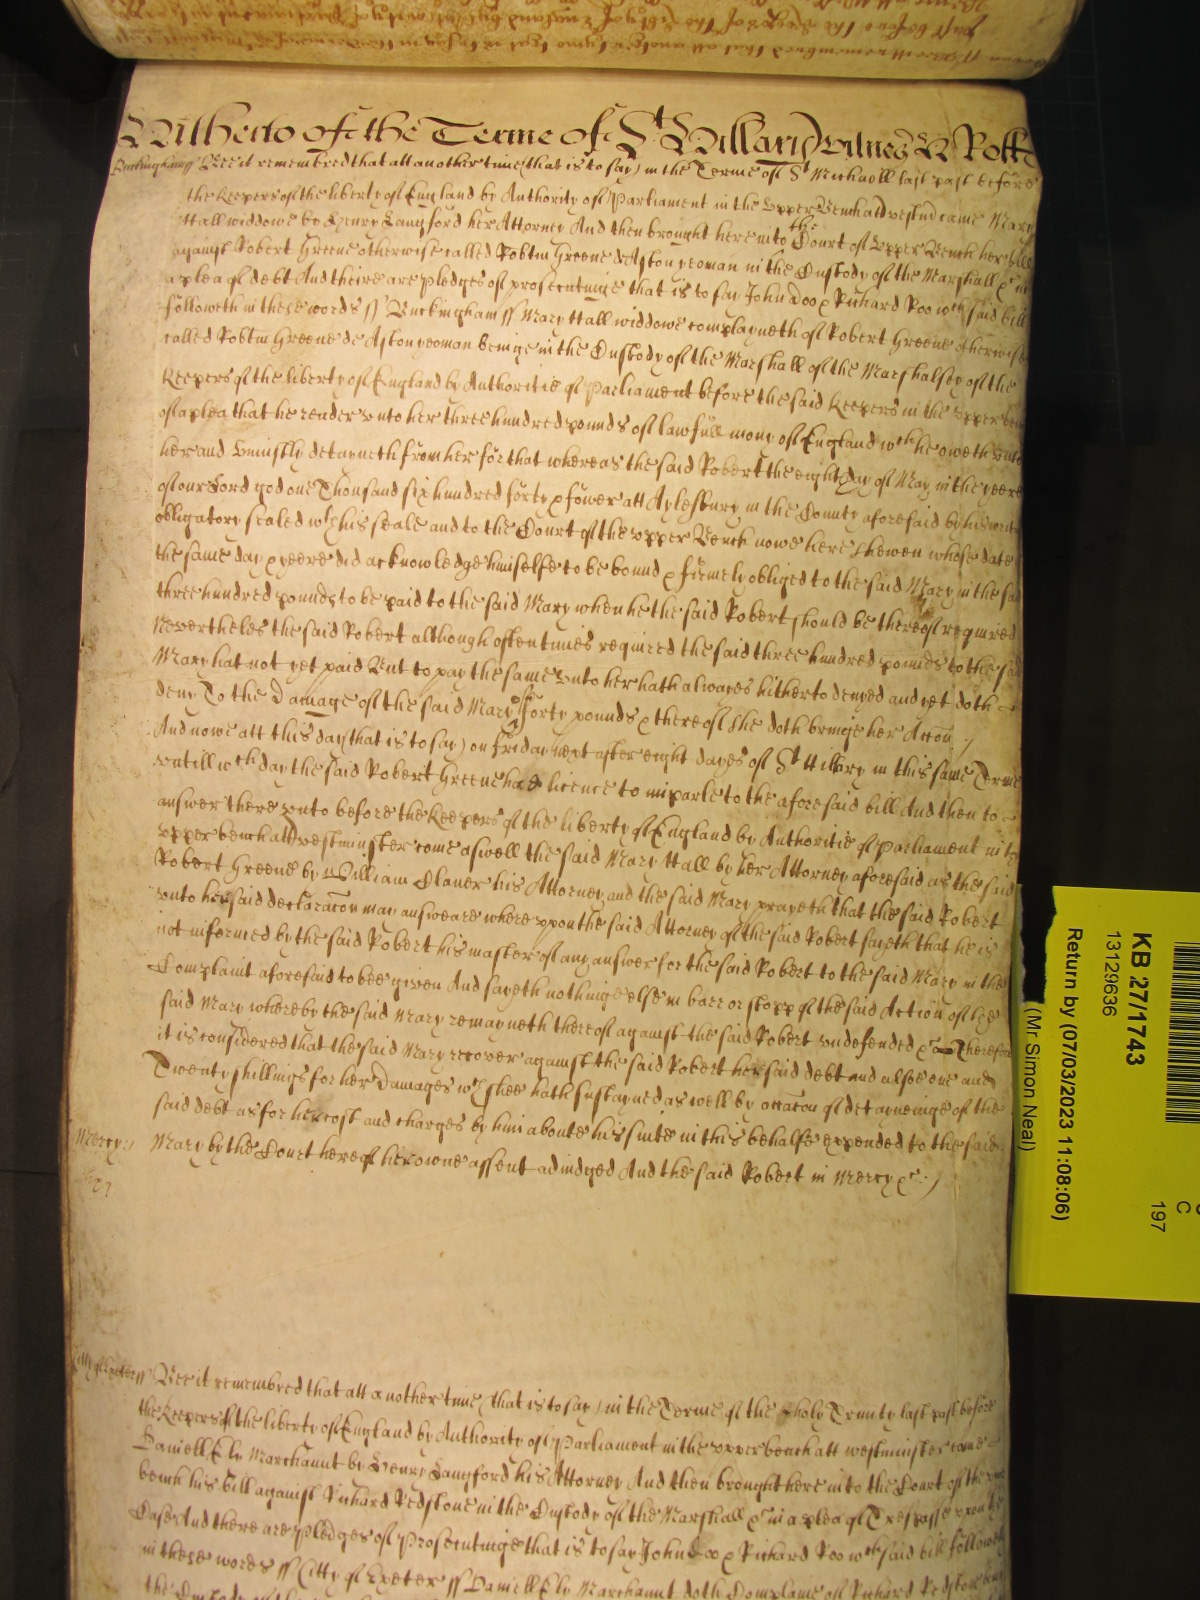 Witherto of the Terme of St Hillary Witnes H Rolle
Buckingham ss Bee it remembred that att another time (that is to say) in the Terme of St Michaell last past before
the Keepers of the liberty of England by Authority of Parliament in the Upper Bench att westmr came Mary
Hall widdowe by Henry Langford her Attorney And then brought here into the Court of Upper Bench her bill
against Robert Greene otherwise called Robtm Greene de Aston yeoman in the Custody of the Marshall &c in
a plea of debt And theire are pledges of prosecutinge that is to say John Doo & Richard Roo wch said bill
followeth in these words ss Buckingham ss Mary Hall widdowe complayneth of Robert Greene otherwise
called Robtm Greene de Aston yeoman beinge in the Custody of the Marshall of the Marshalsey of the
Keepers of the liberty of England by Authoritie of Parliament before the said Keepers in the upper bench
of a plea that he render unto her three hundred pounds of lawfull mony of England wch he oweth unto
her and uniustly detayneth from her for that whereas the said Robert the eight day of May in the yeere
of our Lord god one Thousand six hundred forty & fower att Aylesbury in the County aforesaid by his writ
obligatory sealed wth his seale and to the Court of the upper Bench nowe here shewen whose date
the same day & yeere did acknowledge himselfe to be bound & firmely obliged to the said Mary in the said
three hundred pounds to be paid to the said Mary when he the said Robert should be thereof required
Nevertheles the said Robert although oftentimes required the said three hundred pounds to the said
Mary hat not yet paid But to pay the same unto her hath alwayes hitherto denyed and yet doth
deny To the Damage of the said Mary of forty pounds & thereof she doth bringe her Accon
And nowe att this day (that is to say) on Friday next after eight dayes of St Hillary in this same Terme
untill wch day the said Robert Greene had licence to imparle to the aforesaid bill And then to
answer there unto before the Keepers of the liberty of England by Authoritie of parliament in the
upper bench att westminster come aswell the said Mary Hall by her Attorney aforesaid as the said
Robert Greene by William Claver his Attorney and the said Mary prayeth that the said Robert
unto her said declaracon may answeare where uppon the said Attorney of the said Robert sayeth that he is
not informed by the said Robert his master of any answer for the said Robert to the said Mary in the
Complaint aforesaid to bee given And sayeth nothinge else in barr or stopp of the said Action of the
said Mary whereby the said Mary remayneth thereof against the said Robert undefended &c Therefore
it is considered that the said Mary recover against the said Robert her said debt and alsoe one and
Twenty shillings for her Damages wch shee hath sustayned as well by occacon of detayneinge of the
said debt as for her cost and charges by him aboute his suite in this behalfe expended to the said
Mercy Mary by the Court here of her owne assent adiudged And the said Robert in Mercy &c
Citty of Exeter ss Bee it remembred that att another time (that is to say) in the Terme of the Holy Trinity last past before
the Keepers of the liberty of England by Authority of Parliament in the upper bench att westminster came
Daniell Ely Marchaunt by Henry Langford his Attorney And then brought here into the Court of the upper
bench his bill against Richard Redstone in the Custody of the Marshall &c in a plea of Trespasse upon the
Case And there are Pledges of Prosecutinge that is to say John Doo & Richard Roo wch said bill followeth
in these words ss Citty of Exeter ss Daniell Ely Marchaunt doth Complaine of Richard Redstone
KB 27/1743
13129636
Return by (07/03/2023 11:08:06)
(Mr Simon Neal)
C
197